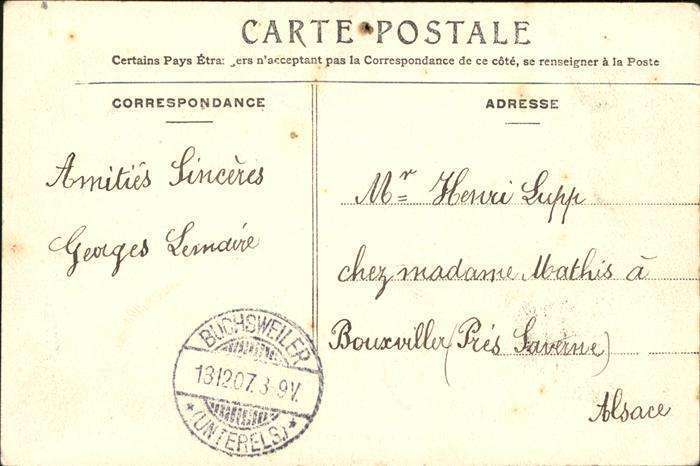 CARTE POSTALE
Certains Pays Étrangers n'acceptant pas la Correspondance de ce côté, se renseigner à la Poste
CORRESPONDANCE
Amitiés Sincères
Georges Lemaire
ADRESSE
Mr Henri Lupp
chez madame Mathis à
Bouxviller (Près Saverne)
Alsace
BUCHSWEILER
13 12 07. 8-9V.
* (UNTERELS.) *